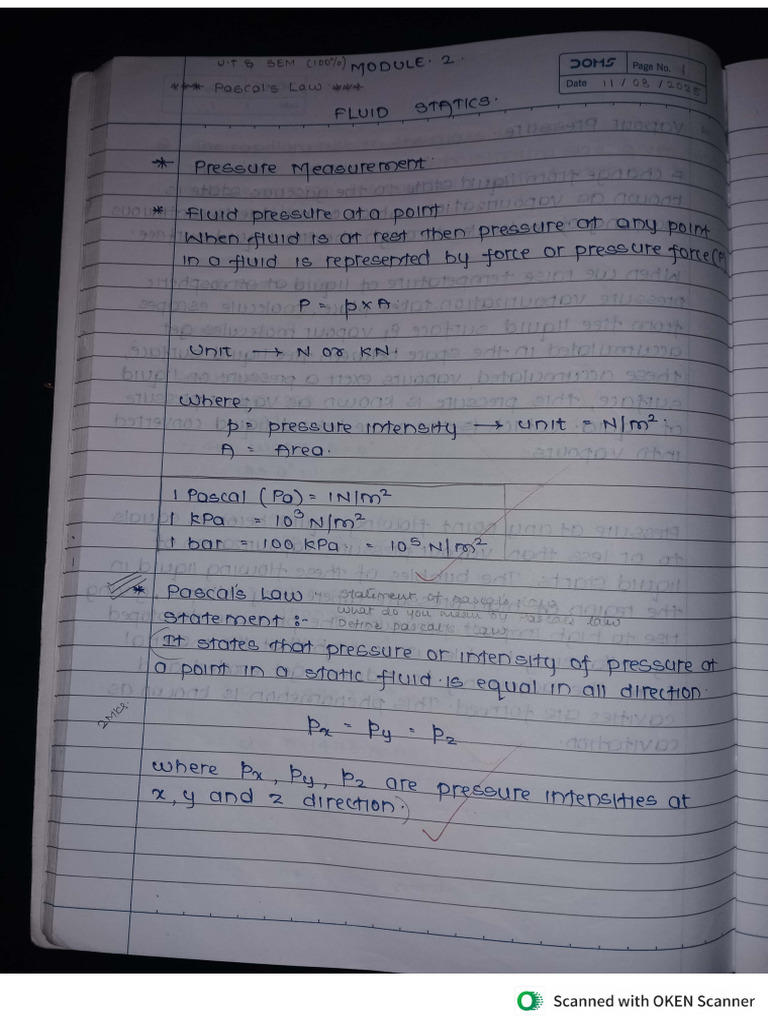 U.T & SEM (100%) MODULE. 2
DOMS Page No. 1
*** Pascal's Law ***
Date 11/08/2025
FLUID STATICS.
* Pressure Measurement.
* Fluid pressure at a point
When fluid is at rest then pressure at any point
in a fluid is represented by force or pressure force(P)
P = p×A
Unit → N or KN.
Where,
p = pressure intensity → unit = N/m²
A = Area.
1 Pascal (Pa) = 1N/m²
1 kPa = 10³ N/m²
1 bar = 100 kPa = 10⁵ N/m²
* Pascal's Law - statement of pascal's law
what do you mean by Pascals law
Statement :- Define pascal's law
It states that pressure or intensity of pressure at
a point in a static fluid is equal in all direction.
2Mks.
Px = Py = Pz
where Px, Py, Pz are pressure intensities at
x, y and z direction.)
Scanned with OKEN Scanner